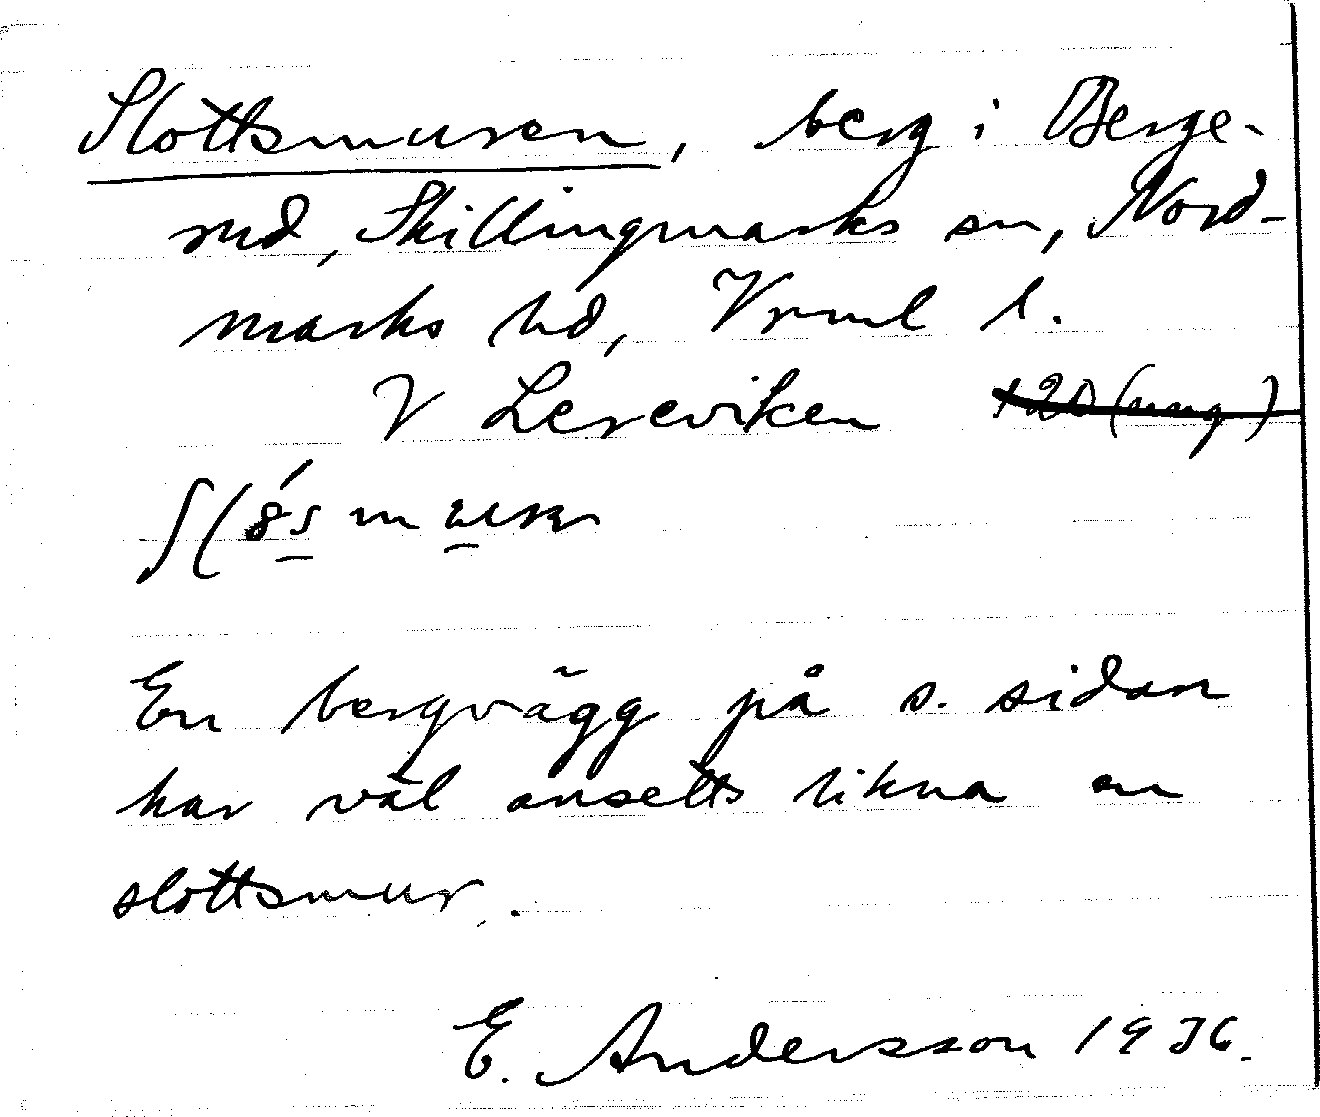 Slottsmuren, berg i Berge-
rud, Skillingmarks sn, Nord-
marks hd, Vrml l.
V Lereviken
En bergvägg på s. sidan
har väl ansetts likna en
slottsmur.
E. Andersson 1936.